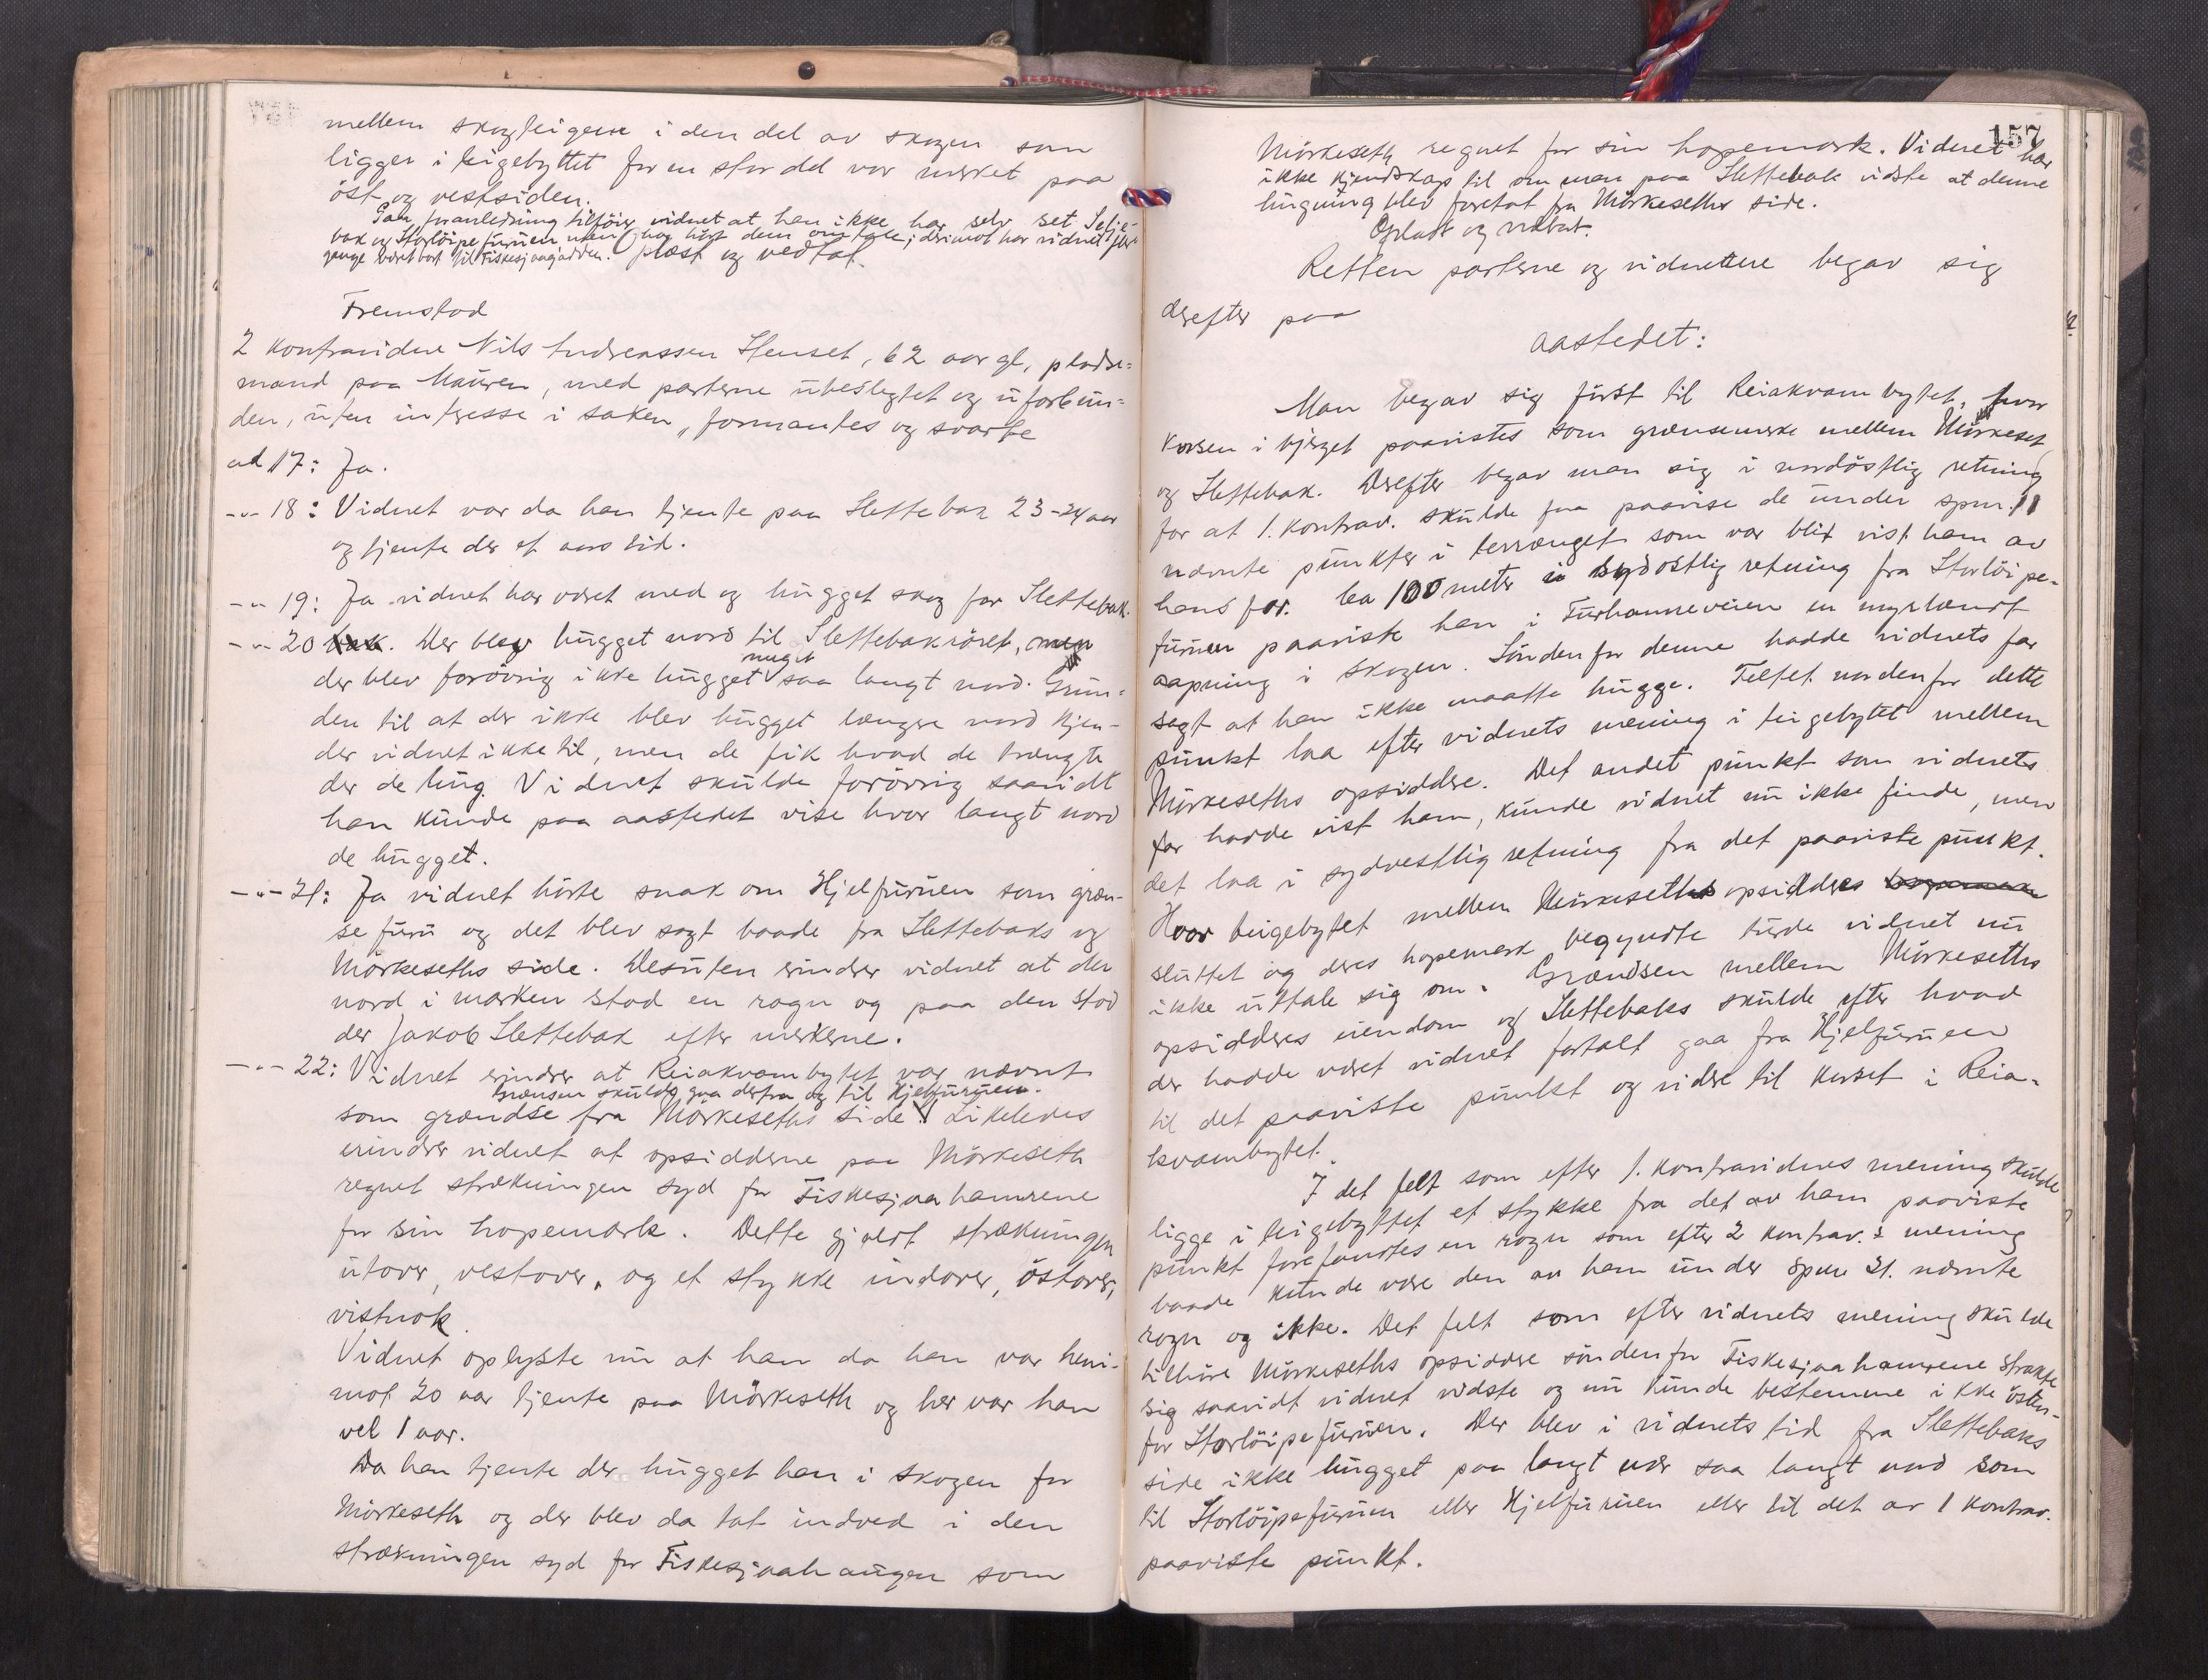 mellem skogteigene i den del av skogen som
ligger i teigebyttet for en stor del var merket paa
öst og vestsiden.
Paa foranledning tilföier vidnet at han ikke har selv set Selje-
bak og Storlöipefuruen men har hört dem omtale; derimot har vidnet flere
gange været bort til Fiskesjaagadden. Oplæst og vedtat.
Fremstod
2 kontravidne Nils Andreassen Stenset, 62 aar gl, pladse=
mand paa Mauren, med parterne ubeslegtet og uforbun=
den, uten intresse i saken, formantes og svarte
ad 17: Ja.
-"- 18: Vidnet var da han tjente paa Slettebak 23-24 aar
og tjente der et aars tid.
-"- 19: Ja vidnet har været med og hugget skog for Slettebak.
-"- 20 Der blev hugget nord til Slettebakröret, men
der blev forövrig ikke hugget noget saa langt nord. Grun=
den til at der ikke blev hugget længre nord kjen-
der vidnet ikke til, men de fik hvad de trængte
der de hug. Vidnet skulde forövrig saavidt
han kunde paa aastedet vise hvor langt nord
de hugget.
-"- 21: Ja vidnet hörte snak om Hjelfuruen som græn-
se furu og det blev sagt baade fra Slettebaks og
Mörkeseths side. Desuten erindrer vidnet at der
nord i marken stod en rogn og paa den stod
der Jakob Slettebak efter merkerne.
-"- 22: Vidnet erindrer at Reiakvambytet var nævnt
Grænsen skulde gaa derfra og til Hjelfuruen.
som grændse fra Mörkeseths side. Likeledes
erindrer vidnet at opsidderne paa Mörkeseth
regnet strækningen syd for Fiskesjaahamrene
for sin hopemark. Dette gjaldt strækningen
utover, vestover, og et stykke indover, östover,
vistnok.
Vidnet oplyste nu at han da han var heni-
mot 20 aar tjente paa Mörkeseth og her var han
vel 1 aar.
Da han tjente der hugget han i skogen for
Mörkeseth og der blev da tat indved i den
strækningen syd for Fiskesjaahaugen som
157
Mörkeseth regnet for sin hopemark. Vidnet har
ikke kjendskap til om man paa Slettebak vidste at denne
hugning blev foretat fra Mörkeseths side.
Oplæst og vedtat.
Retten parterne og vidnerne begav sig
derefter paa
aastedet:
Man begav sig först til Reiakvambytet, hvor
korsen i bjerget paavistes som grænsemerke mellem Mörkeset
og Slettebak. Derefter begav man sig i nordöstlig retning
for at 1. kontrav. skulde faa paavise de under spm. 11
nævnte punkter i terrænget som var blit vist ham av
hans far. Ca 100 meter i sydostlig retning fra Storlöipe-
furuen paaviste han i Furhamreveien en myrlændt
aapning i skogen. Sönden for denne hadde vidnets far
sagt at han ikke maatte hugge. Feltet norden for dette
punkt laa efter vidnets mening i teigebytet mellem
Mörkeseths opsiddere. Det andet punkt som vidnets
far hadde vist ham, kunde vidnet nu ikke finde, men
det laa i sydvestlig retning fra det paaviste punkt.
Hvor teigebytet mellem Mörkeseths opsidderes
sluttet og deres hopemark begyndte turde vidnet nu
ikke uttale sig om. Grændsen mellem Mörkeseths
opsidderes eiendom og Slettebaks skulde efter hvad
der hadde været vidnet fortalt gaa fra Hjelfuruen
til det paaviste punkt og videre til korset i Reia-
kvambytet.
I det felt som efter 1. kontravidnes mening skulde
ligge i teigebyttet et stykke fra det av ham paaviste
punkt forefandtes en rogn som efter 2 kontrav.s mening
baade kunde være den av ham under spm 21. nævnte
rogn og ikke. Det felt som efter vidnets mening skulde
tilhöre Mörkeseths opsiddere sönden for Fiskesjaahamrene strakte
sig saavidt vidnet vidste og nu kunde bestemme ikke östen-
for Storlöipefuruen. Der blev i vidnets tid fra Slettebaks
side ikke hugget paa langt nær saa langt nord som
til Storlöipefuruen eller Hjelfuruen eller til det av 1 kontrav.
paaviste punkt.